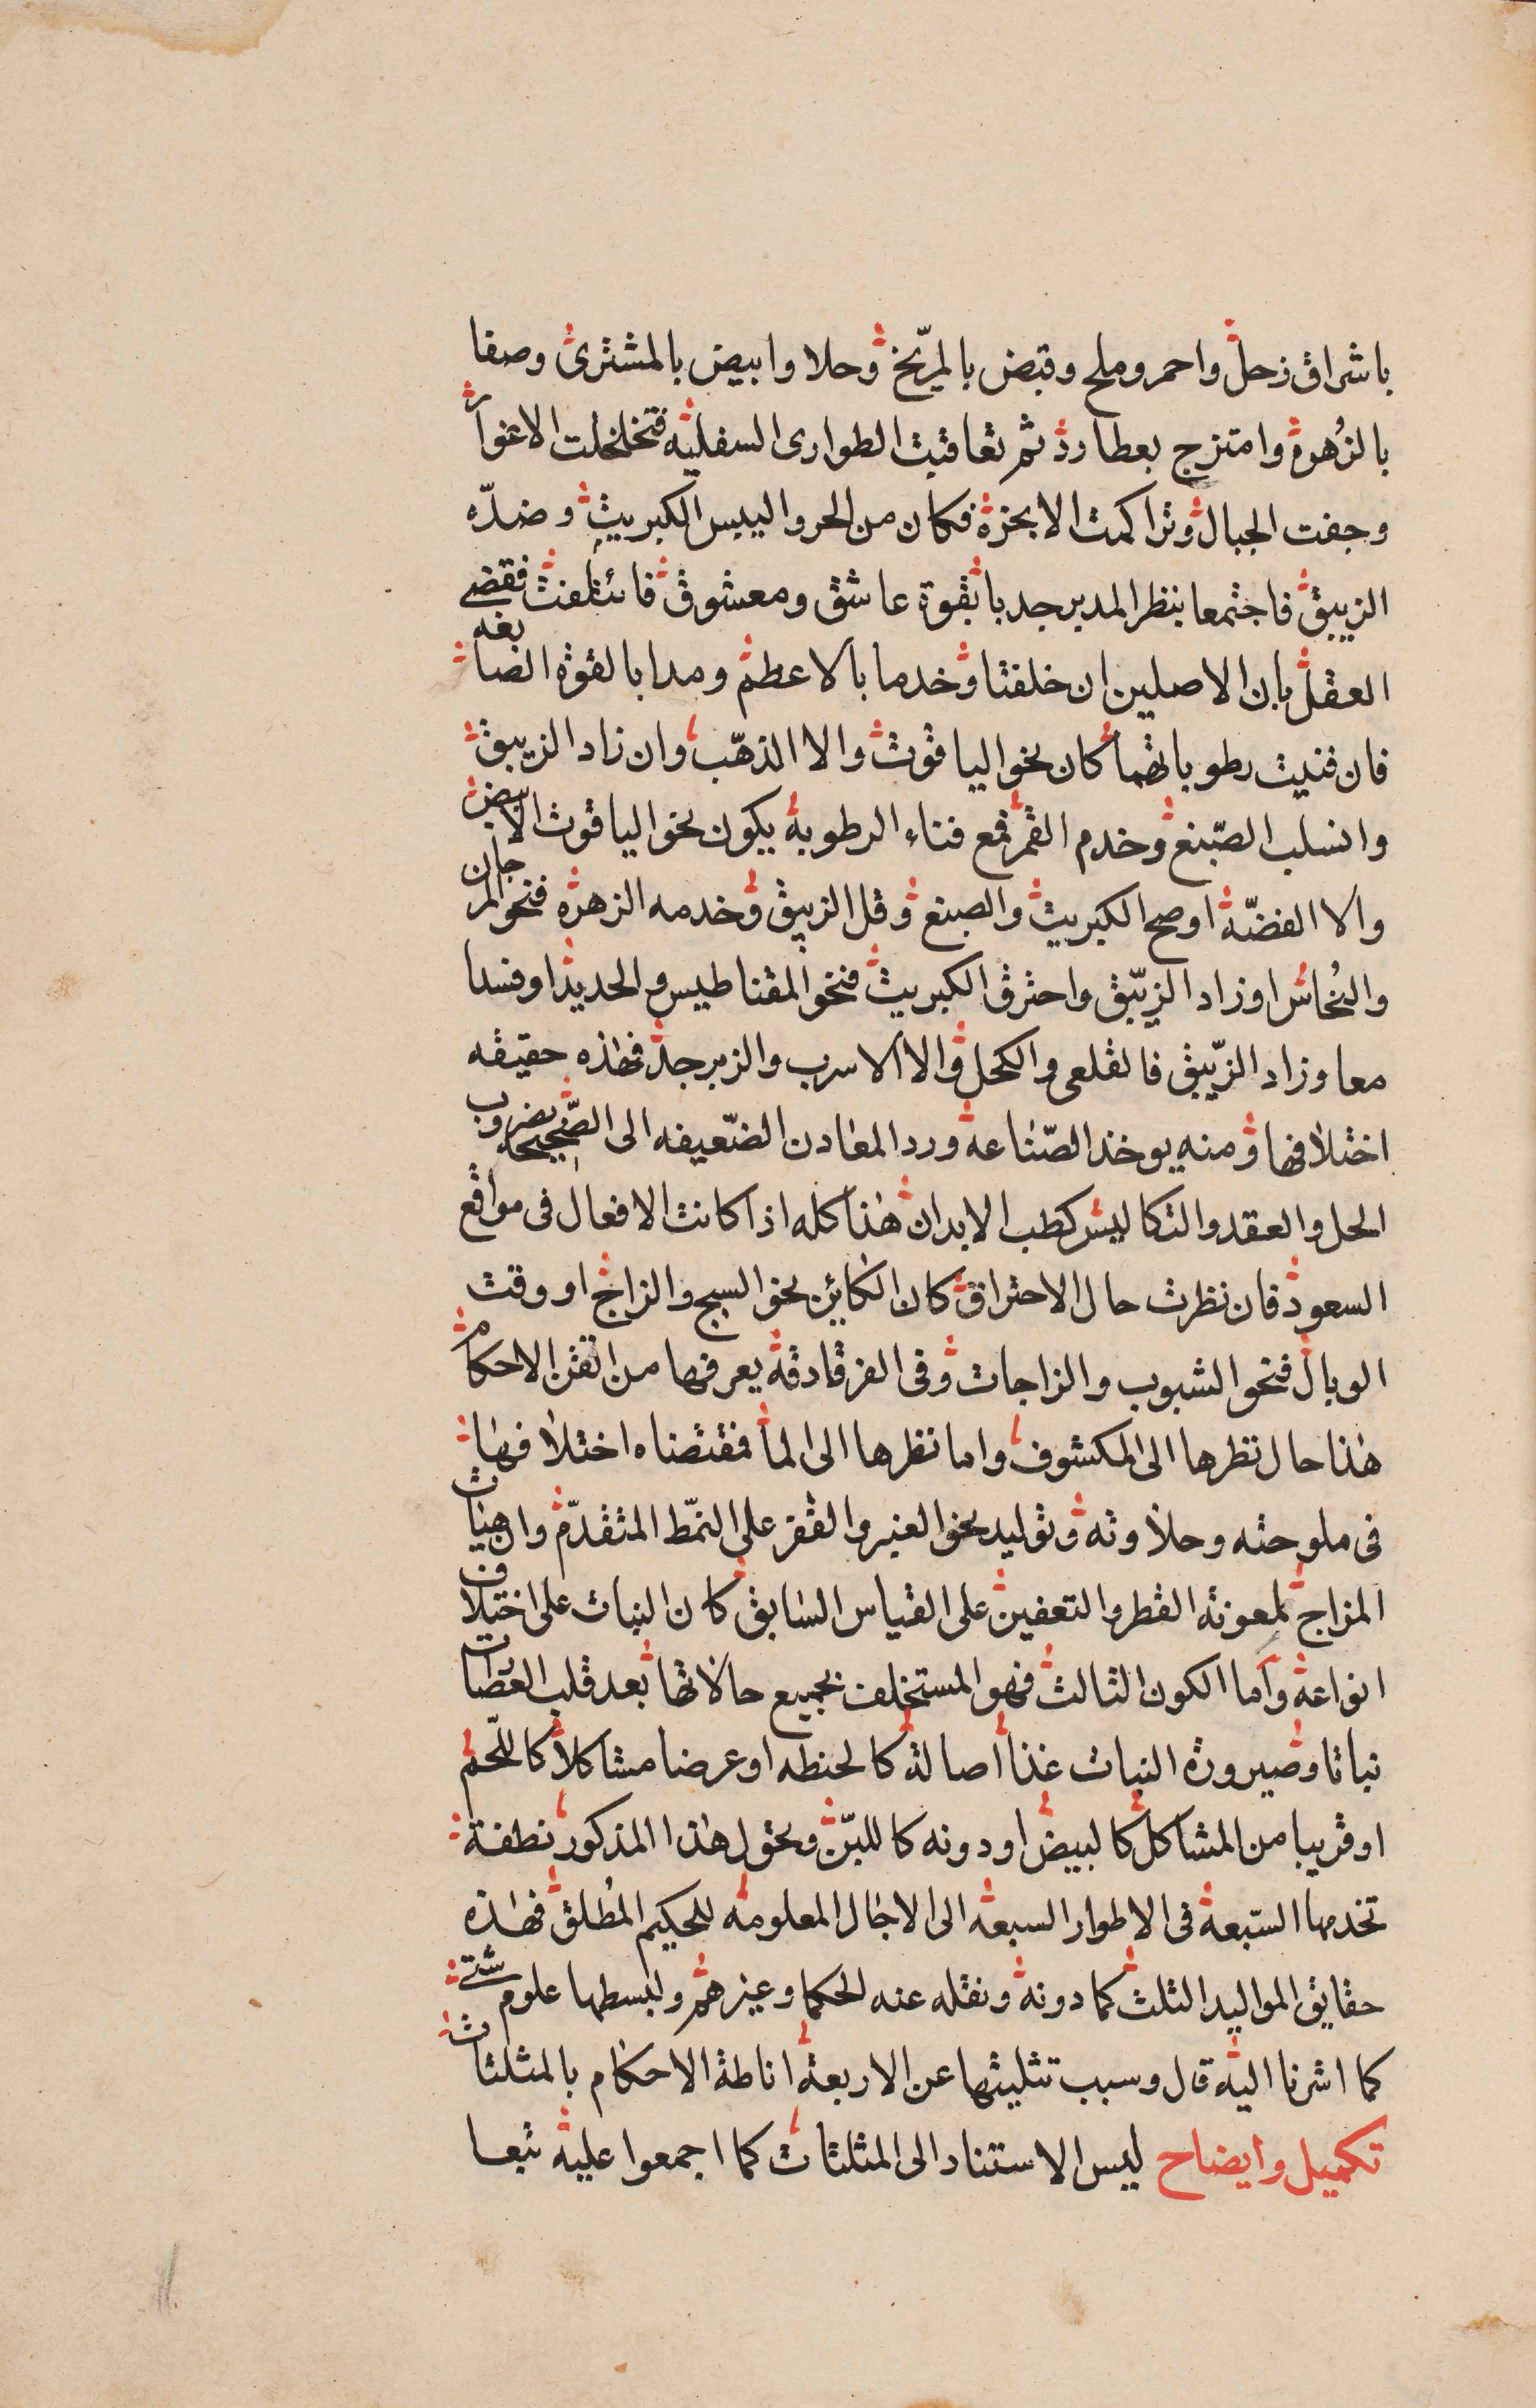 باشراق زحل واحمر وملح وقبض بالمرّيخ وحلا وابيض بالمشترى وصفا
بالزُهرة وامتزج بعطارد ثم تعاقبت الطوارى السفليه فتخلخلت الاغوار
وجفت الجبال وتراكمت الابخرة فكان من الحر واليبس الكبريت وضدّه
الزيبق فاجتمعا بنظر المدبر جدبا بقوة عاشق ومعشوق فائتلفت فقضے
العقل بان الاصلين ان خلفتا وخدما بالاعظم ومدا بالقوة الصابغه
فان فنيت رطوباتهما كان نحو الياقوت والا الذهّب وان زاد الزيبق
وانسلب الصّبنغ وخدم القمر فمع فناء الرطوبة يكون نحو الياقوت الابيض
والا الفضّة اوصح الكبريت والصبنغ وقل الزيبق وخدمه الزهرة فنحو المرجان
والنُحاس اوزاد الزيّبق واحترق الكبريت فنحو المقناطيس والحديد اوفسدا
معا وزاد الزيّبق فالقلعى والكحل والا الاسرب والزبرجد فهٰذه حقيقه
اختلافها ومنه يوخذ الصّناعة ورد المعادن الضّعيفه الى الصّحيحه بضروب
الحل والعقد والتكاليس كطب الابدان هٰذا كله اذا كانت الافعال فى مواقع
السعود فان نظرت حال الاحتراق كان الكائن نحو السبج والزاج او وقت
الوبال فنحو الشبوب والزاجات وفى الفرقادقة يعرفها من اتقن الاحكام
هٰذا حال نظرها الى المكشوف واما نظرها الى الما فمقتضاه اختلافها
فى ملوحته وحلاوته وتوليد نحو العنبر والقفر على النمّط المتقدّم وان هيات
المزاج لمعونة القطر والتعفين على القياس السّابق كان النبات على اختيلاف
انواعة وآما الكون الثالث فهو المستخلف بجميع حالاتها بعد قلب العصارات
نباتا وصيرورة النبات غذا اصالة كالحنطه اوعرضا مشاكلا كاللّحم
اوقريبا من المشاكل كالبيض اودونه كاللبّن وتحول هٰذا المذكور نطفة
تخدمها السّبعة فى الاطوار السبعة الى الاجال المعلومة للحكيم المُطلق فهٰذه
حقايق المواليد الثلث كما دونة ونقله عنه الحكما وغيرهم ولبسطها علوم شتے
كما اشرنا الية قال وسبب تثليثها عن الاربعة اناطة الاحكام بالمثلثات
تكميل وايضاح ليس الاستناد الى المثلثات كما اجمعوا علية تبعا